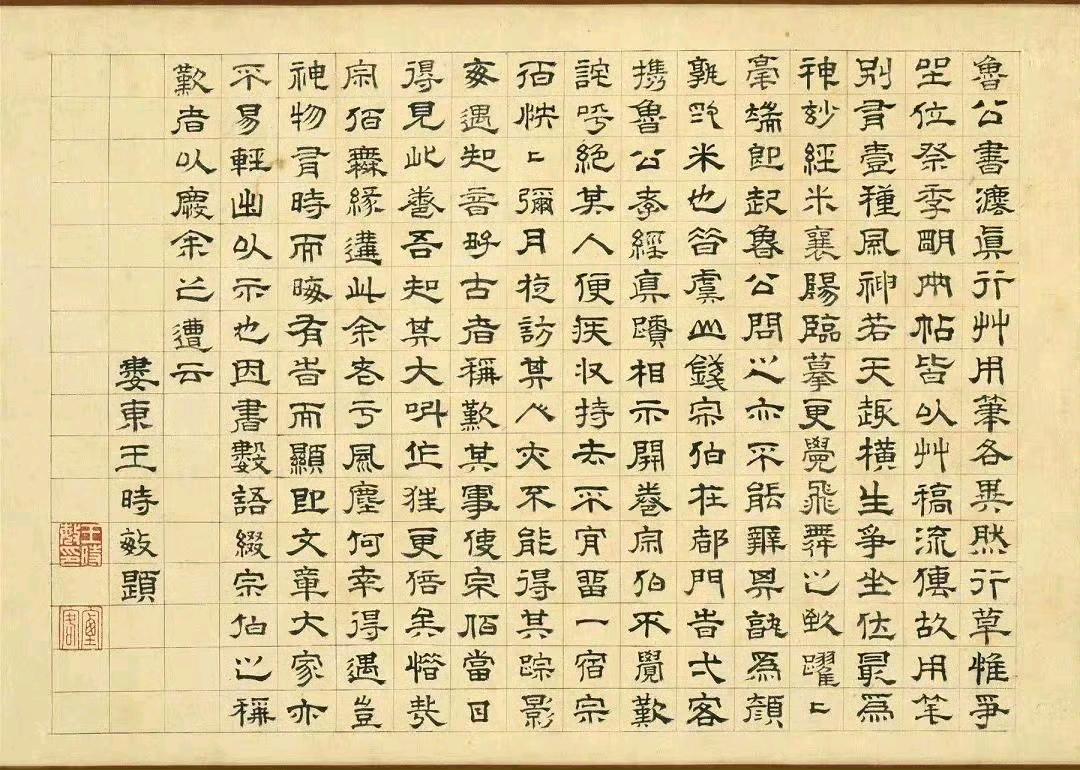 魯公書灋真行艸用筆各異然行草惟爭
坐位祭季明兩帖皆以艸稿流傳故用筆
別有壹種風神若天趣橫生爭坐位最為
神妙經米襄陽臨摹更覺飛舞之致躍〻
毫端即起魯公問之亦不能辨其孰為顏
孰為米也昔虞山錢宗伯在都門旹弋客
攜魯公孝經真蹟相示開卷宗伯不覺歎
詫呼絕其人便疾收持去不肯留一宿宗
伯怏〻彌月後訪其人亦不能得其踪影
每遇知音好古者稱歎其事使宗伯當日
得見此卷吾知其大叫作狂更倍矣惜哉
宗伯無緣遘此余老于風塵何幸得遇豈
神物有時而晦有旹而顯即文章大家亦
不易輕出以示也因書數語綴宗伯之稱
歎者以慶余之遭云
婁東王時敏題
王時敏印